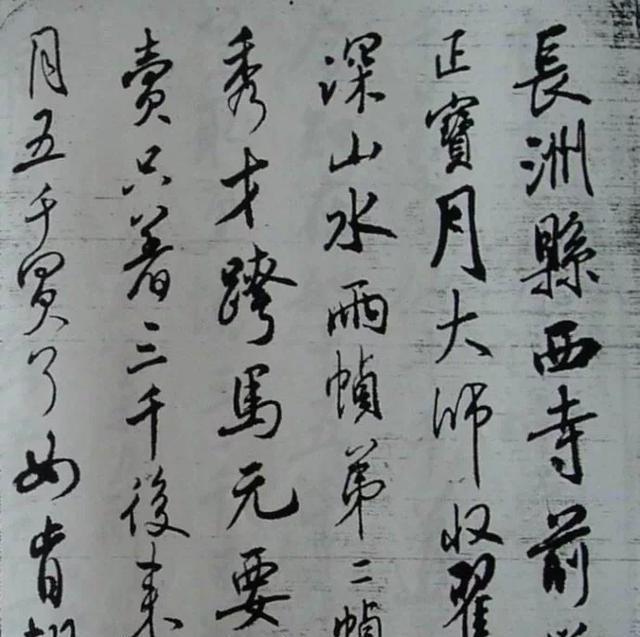 長洲縣西寺前
正寶月大師收翟
深山水兩幀第二幀
秀才跨馬元要
賣只著三千後來
月五千買了如肯